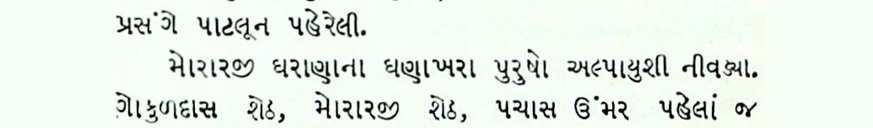 પ્રસંગે પાટલૂન પહેરેલી.
મોરારજી ઘરાણાના ઘણાખરા પુરુષો અલ્પાયુશી નીવડ્યા.
ગોકુળદાસ શેઠ, મોરારજી શેઠ, પચાસ ઉંમર પહેલાં જ